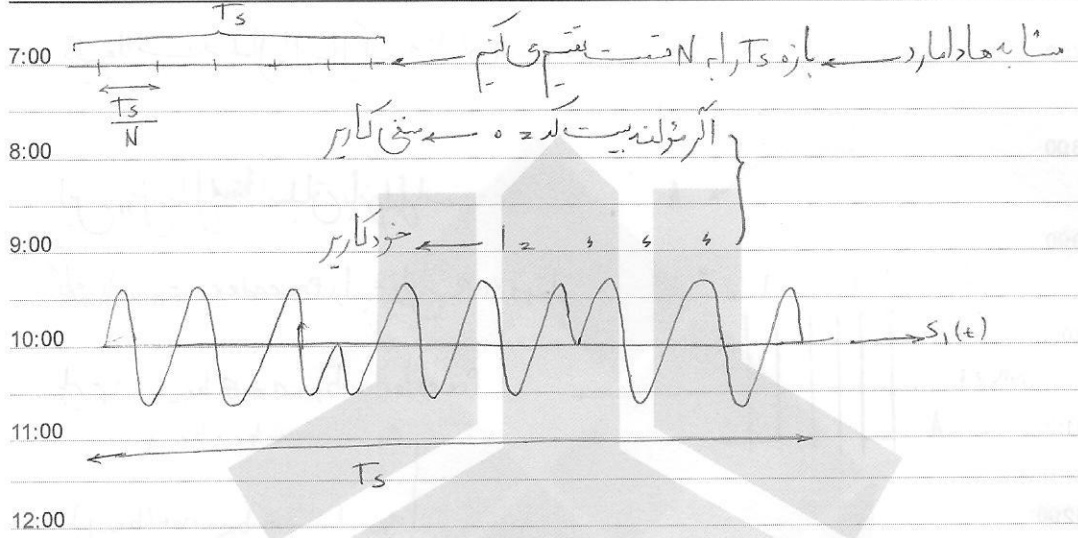 Ts
7:00
مشابه هادامارد ← بازه Ts را به N قسمت تقسیم می کنیم ←
Ts/N
اگر مؤلفه بیت کد = 0 ← منفی کاریر
8:00
9:00
〃 〃 〃 = 1 ← خود کاریر
10:00
S₁(t)
11:00
Ts
12:00